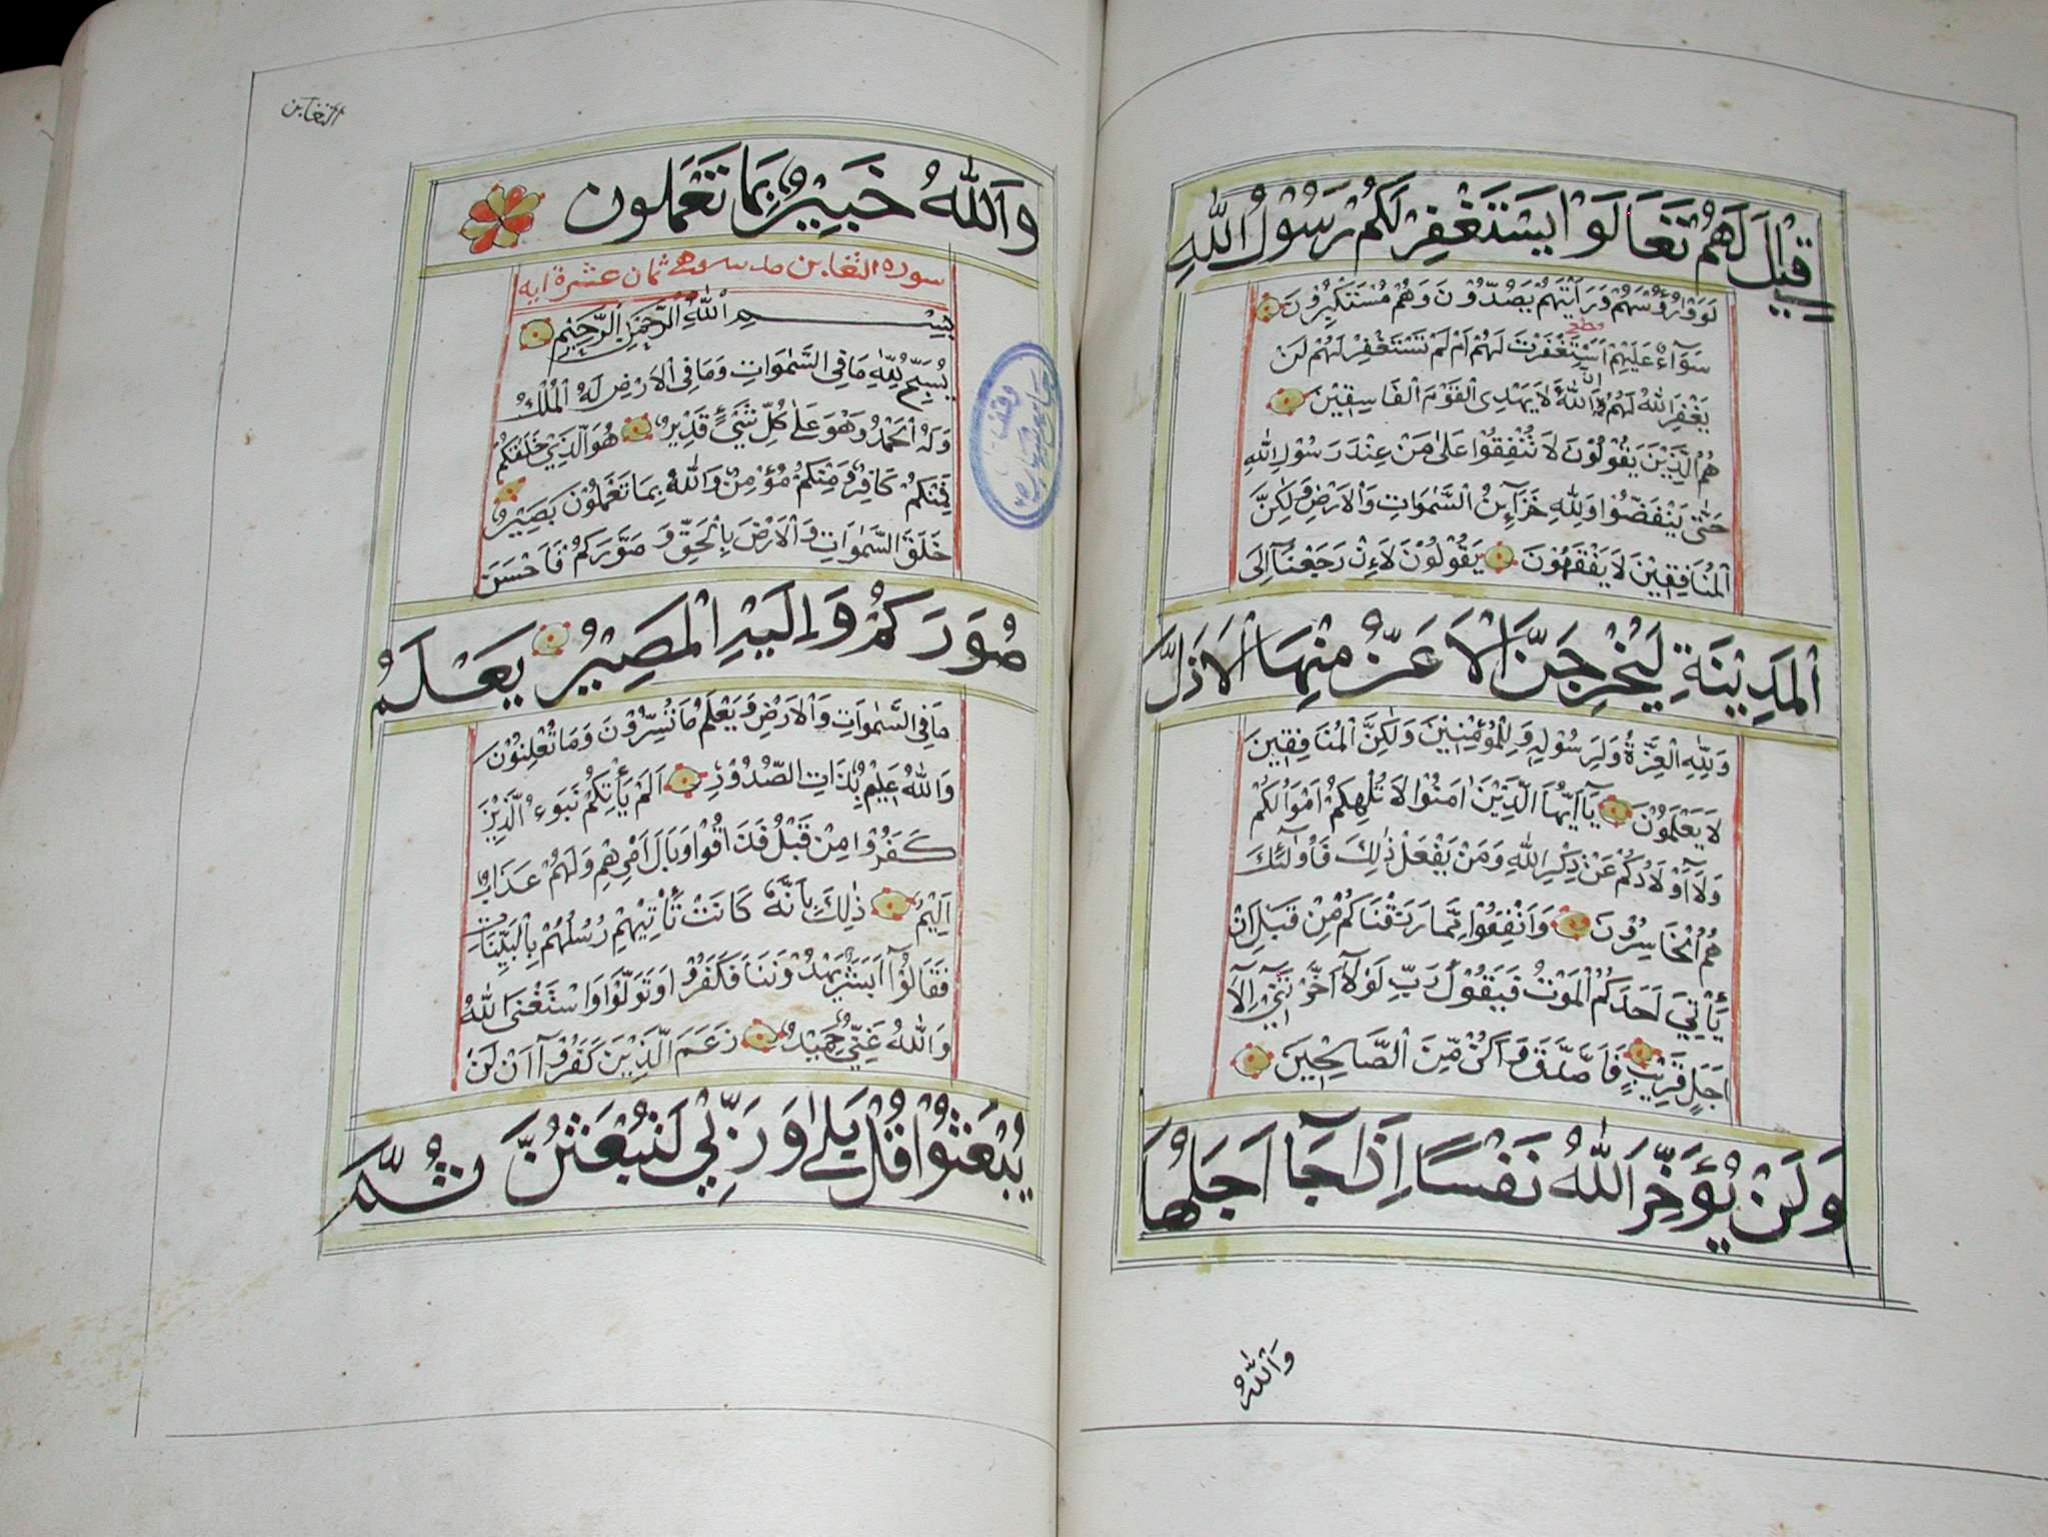 قِيْلَ لَهُمْ تَعَالَوْا يَسْتَغْفِرْ لَكُمْ رَسُوْلُ اللّٰهِ
لَوَّوْا رُؤُسَهُمْ وَرَاَيْتَهُمْ يَصُدُّوْنَ وَهُمْ مُسْتَكْبِرُوْنَ
سَوَآءٌ عَلَيْهِمْ اَسْتَغْفَرْتَ لَهُمْ اَمْ لَمْ تَسْتَغْفِرْ لَهُمْ لَنْ
يَغْفِرَ اللّٰهُ لَهُمْ اِنَّ اللّٰهَ لَا يَهْدِى الْقَوْمَ الْفَاسِقِيْنَ
هُمُ الَّذِيْنَ يَقُوْلُوْنَ لَا تُنْفِقُوْا عَلٰى مَنْ عِنْدَ رَسُوْلِ اللّٰهِ
حَتّٰى يَنْفَضُّوْا وَلِلّٰهِ خَزَآئِنُ السَّمٰوَاتِ وَالْاَرْضِ وَلٰكِنَّ
الْمُنَافِقِيْنَ لَا يَفْقَهُوْنَ يَقُوْلُوْنَ لَاءِنْ رَجَعْنَآ اِلَى
الْمَدِيْنَةِ لَيُخْرِجَنَّ الْاَعَزُّ مِنْهَا الْاَذَلَّ
وَلِلّٰهِ الْعِزَّةُ وَلِرَسُوْلِهِ وَلِلْمُؤْمِنِيْنَ وَلٰكِنَّ الْمُنَافِقِيْنَ
لَا يَعْلَمُوْنَ يَآ اَيُّهَا الَّذِيْنَ اٰمَنُوْا لَا تُلْهِكُمْ اَمْوَالُكُمْ
وَلَآ اَوْلَادُكُمْ عَنْ ذِكْرِ اللّٰهِ وَمَنْ يَفْعَلْ ذٰلِكَ فَاُولٰٓئِكَ
هُمُ الْخَاسِرُوْنَ وَاَنْفِقُوْا مِمَّا رَزَقْنَاكُمْ مِنْ قَبْلِ اَنْ
يَّاْتِيَ اَحَدَكُمُ الْمَوْتُ فَيَقُوْلَ رَبِّ لَوْلَآ اَخَّرْتَنِيْٓ اِلٰٓى
اَجَلٍ قَرِيْبٍ فَاَصَّدَّقَ وَاَكُنْ مِّنَ الصَّالِحِيْنَ
وَلَنْ يُؤَخِّرَ اللّٰهُ نَفْسًا اِذَا جَآ اَجَلُهَا
وَاللّٰهُ
التغابن
وَاللّٰهُ خَبِيْرٌ بِمَا تَعْمَلُوْنَ
سورة التغابن مدنية وهي ثمان عشرة اية
بِسْمِ اللّٰهِ الرَّحْمٰنِ الرَّحِيْمِ
يُسَبِّحُ لِلّٰهِ مَا فِى السَّمٰوَاتِ وَمَا فِى الْاَرْضِ لَهُ الْمُلْكُ
وَلَهُ الْحَمْدُ وَهُوَ عَلٰى كُلِّ شَيْءٍ قَدِيْرٌ هُوَ الَّذِيْ خَلَقَكُمْ
فَمِنْكُمْ كَافِرٌ وَمِنْكُمْ مُؤْمِنٌ وَاللّٰهُ بِمَا تَعْمَلُوْنَ بَصِيْرٌ
خَلَقَ السَّمٰوَاتِ وَالْاَرْضَ بِالْحَقِّ وَصَوَّرَكُمْ فَاَحْسَنَ
صُوَرَكُمْ وَاِلَيْهِ الْمَصِيْرُ يَعْلَمُ
مَا فِى السَّمٰوَاتِ وَالْاَرْضِ وَيَعْلَمُ مَا تُسِرُّوْنَ وَمَا تُعْلِنُوْنَ
وَاللّٰهُ عَلِيْمٌ بِذَاتِ الصُّدُوْرِ اَلَمْ يَاْتِكُمْ نَبَوءُ الَّذِيْنَ
كَفَرُوْا مِنْ قَبْلُ فَذَاقُوْا وَبَالَ اَمْرِهِمْ وَلَهُمْ عَذَابٌ
اَلِيْمٌ ذٰلِكَ بِاَنَّهُ كَانَتْ تَّاْتِيْهِمْ رُسُلُهُمْ بِالْبَيِّنَاتِ
فَقَالُوْآ اَبَشَرٌ يَهْدُوْنَنَا فَكَفَرُوْا وَتَوَلَّوْا وَاسْتَغْنَى اللّٰهُ
وَاللّٰهُ غَنِيٌّ حَمِيْدٌ زَعَمَ الَّذِيْنَ كَفَرُوْآ اَنْ لَنْ
يُبْعَثُوْا قُلْ بَلٰى وَرَبِّيْ لَتُبْعَثُنَّ ثُمَّ